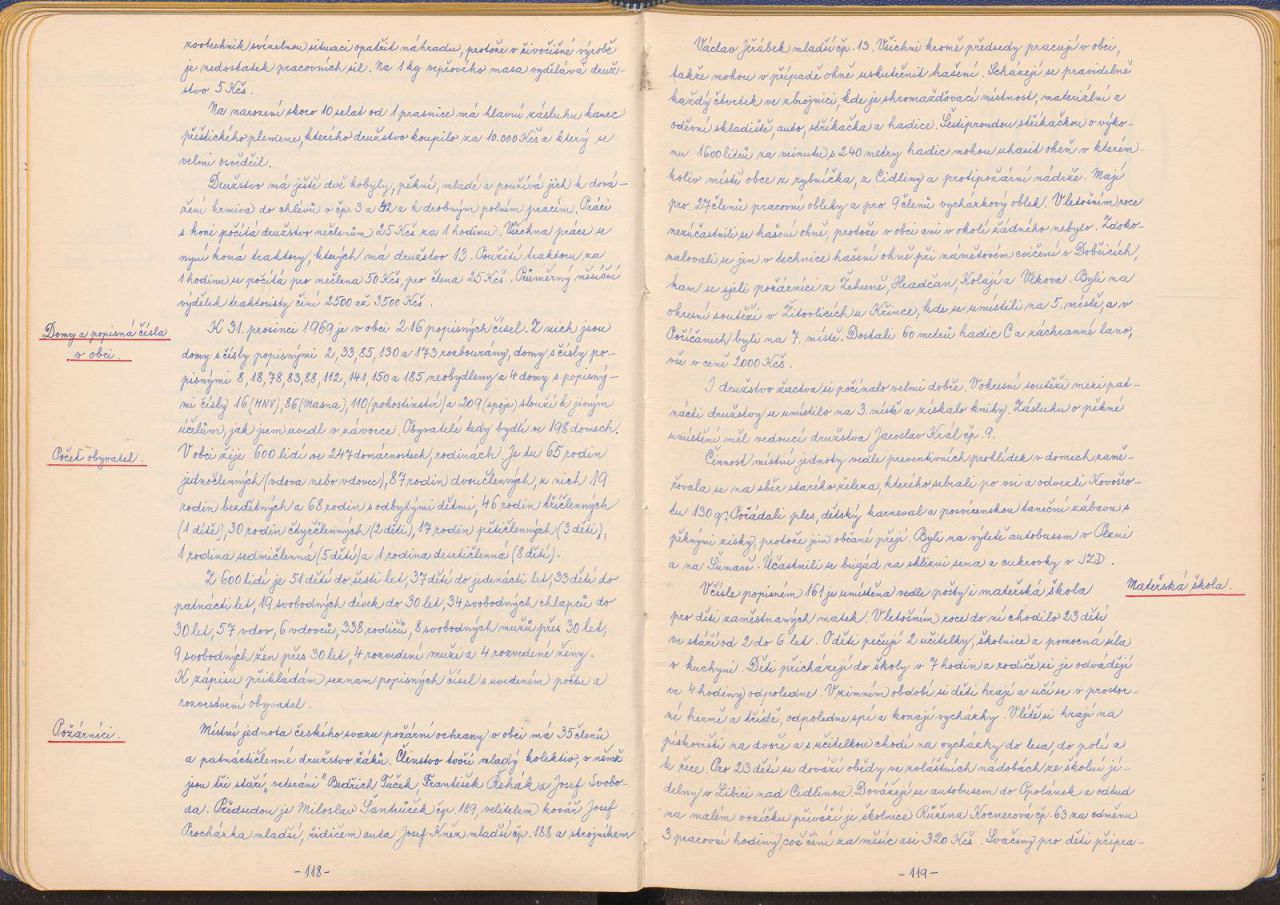 zootechnik svízelnou situaci opatřit náhradu, protože v živočišné výrobě
je nedostatek pracovních sil. Na 1 kg vepřového masa vydělává druž-
stvo 5 Kčs.
Na narození skoro 10 selat od 1 prasnice má hlavní zásluhu kanec
přeštického plemene, kterého družstvo koupilo za 10.000 Kčs a který se
velmi osvědčil.
Družstvo má ještě dvě kobyly, pěkné, mladé a používá jich k dová-
žení krmiva do chlévů v čp. 3 a 92 a k drobným polním pracím. Práci
s koni počítá družstvo nečlenům 25 Kčs za 1 hodinu. Všechna práce se
nyní koná traktory, kterých má družstvo 13. Použití traktoru za
1 hodinu se počítá pro nečlena 50 Kčs, pro člena 25 Kčs. Průměrný měsíční
výdělek traktoristy činí 2500 až 3500 Kčs.
Domy a popisná čísla
v obci.
K 31. prosinci 1969 je v obci 216 popisných čísel. Z nich jsou
domy s čísly popisnými 2, 33, 85, 130 a 173 rozbourány, domy s čísly po-
pisnými 8, 18, 78, 83, 88, 112, 141, 150 a 185 neobydleny a 4 domy s popisný-
mi čísly 16 (MNV), 86 (Masna), 110 (pohostinství) a 209 (spoje) slouží k jiným
účelům, jak jsem uvedl v závorce. Obyvatelé tedy bydlí ve 198 domech.
Počet obyvatel.
V obci žije 600 lidí ve 247 domácnostech, rodinách. Je tu 65 rodin
jednočlenných (vdova nebo vdovec), 87 rodin dvoučlenných, z nich 19
rodin bezdětných a 68 rodin s odbytými dětmi, 46 rodin tříčlenných
(1 dítě), 30 rodin čtyřčlenných (2 děti), 17 rodin pětičlenných (3 děti),
1 rodina sedmičlenná (5 dětí) a 1 rodina desetičlenná (8 dětí).
Z 600 lidí je 51 dětí do šesti let, 37 dětí do jedenácti let, 33 dětí do
patnácti let, 19 svobodných dívek do 30 let, 34 svobodných chlapců do
30 let, 57 vdov, 6 vdovců, 338 rodičů, 8 svobodných mužů přes 30 let,
9 svobodných žen přes 30 let, 4 rozvedení muži a 4 rozvedené ženy.
K zápisu přikládám seznam popisných čísel s uvedením počtu a
rozvrstvení obyvatel.
Požárníci.
Místní jednota českého svazu požární ochrany v obci má 35 členů
a patnáctičlenné družstvo žáků. Členstvo tvoří mladý kolektiv, v němž
jsou tři staří „veteráni" Bedřich Tuček, František Řehák a Josef Svobo-
da. Předsedou je Miloslav Šantrůček čp. 189, velitelem kovář Josef
Procházka mladší, řidičem auta Josef Kněz mladší čp. 188 a strojníkem
- 118 -
Václav Jeřábek mladší čp. 13. Všichni kromě předsedy pracují v obci,
takže mohou v případě ohně uskutečnit hašení. Scházejí se pravidelně
každý čtvrtek ve zbrojnici, kde je shromažďovací místnost, materiální a
oděvní skladiště, auto, stříkačka a hadice. Šestiproudou stříkačkou o výko-
nu 1600 litrů za minutu s 240 metry hadic mohou uhasit oheň v kterém-
koliv místě obce z rybníčka, z Cidliny a protipožární nádrže. Mají
pro 27 členů pracovní obleky a pro 9 členů vycházkový oblek. V letošním roce
nezúčastnili se hašení ohně, protože v obci ani v okolí žádného nebylo. Zdoko-
nalovali se jen v technice hašení ohně při námětovém cvičení v Dobšicích,
kam se sjeli požárníci z Žehuně, Hradčan, Kolají a Vlkova. Byli na
okresní soutěži v Žitovlicích u Křince, kde se umístili na 5. místě, a v
Poříčanech byli na 7. místě. Dostali 60 metrů hadic C a záchranné lano,
vše v ceně 2000 Kčs.
I družstvo žactva si počínalo velmi dobře. V okresní soutěži mezi pat-
nácti družstvy se umístilo na 3. místě a získalo knihy. Zásluhu o pěkné
umístění měl vedoucí družstva Jaroslav Král čp. 9.
Činnost místní jednoty vedle preventivních prohlídek v domech zamě-
řovala se na sběr starého železa, kterého sebrali po vsi a odvezli Kovošro-
tu 130 q. Pořádali ples, dětský karneval a posvícenskou taneční zábavu s
pěknými zisky, protože jim občané přejí. Byli na výletě autobusem v Plzni
a na Šumavě. Účastnili se brigád na sklizni sena a cukrovky v JZD.
Mateřská škola.
V čísle popisném 161 je umístěna vedle pošty i mateřská škola
pro děti zaměstnaných matek. V letošním roce do ní chodilo 23 dětí
ve stáří od 2 do 6 let. O děti pečují 2 učitelky, školnice a pomocná síla
v kuchyni. Děti přicházejí do školy v 7 hodin a rodiče si je odvádějí
ve 4 hodiny odpoledne. V zimním období si děti hrají a učí se v prostor-
né herně a třídě, odpoledne spí a konají vycházky. V létě si hrají na
pískovišti na dvoře a s učitelkou chodí na vycházky do lesa, do polí a
k řece. Pro 23 dětí se dováží obědy ve zvláštních nádobách ze školní jí-
delny v Libici nad Cidlinou. Dovážejí se autobusem do Opolánek a odtud
na malém vozíčku přiváží je školnice Růžena Kocnerová čp. 63 za odměnu
3 pracovní hodiny, což činí za měsíc asi 320 Kčs. Svačiny pro děti připra-
- 119 -